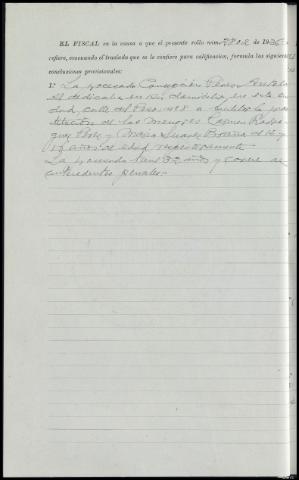 EL FISCAL en la causa a que el presente rollo núm. de 193 se
refiere, evacuando el traslado que se le confiere para calificación, formula las siguientes
conclusiones provisionales:
1ª La procesada Concepción Perez
se dedicaba en su domicilio, en esta ciu
dad, calle del 48 a la pros
titución de las menores Carmen Rodri
guez y Maria Suarez de 16 y
17 años de edad respectivamente
La procesada tiene 32 años y carece de
antecedentes penales.